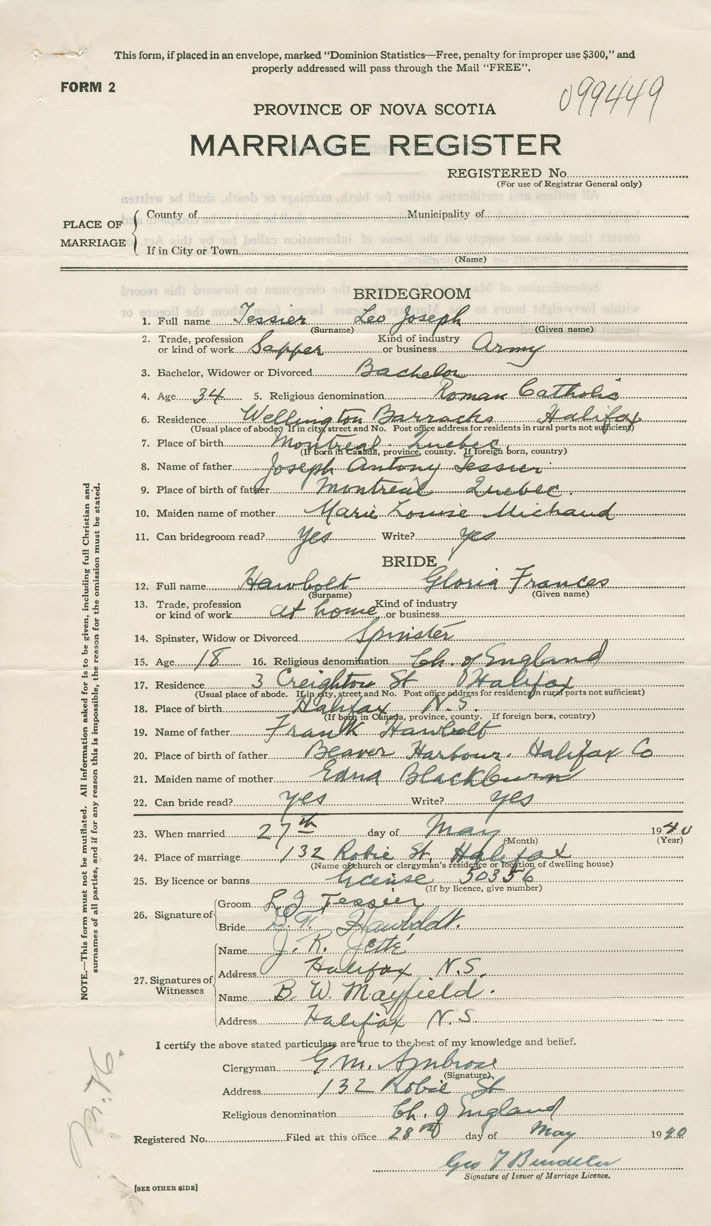 This form, if placed in an envelope, marked "Dominion Statistics—Free, penalty for improper use $300," and
properly addressed will pass through the Mail "FREE".
FORM 2
099449
PROVINCE OF NOVA SCOTIA
MARRIAGE REGISTER
REGISTERED No.
(For use of Registrar General only)
PLACE OF MARRIAGE
County of Municipality of
If in City or Town
(Name)
BRIDEGROOM
1. Full name Tessier Leo Joseph
(Surname) (Given name)
2. Trade, profession or kind of work Sapper Kind of industry or business Army
3. Bachelor, Widower or Divorced Bachelor
4. Age 34 5. Religious denomination Roman Catholic
6. Residence Wellington Barracks Halifax
(Usual place of abode. If in city, street and No. Post office address for residents in rural parts not sufficient)
7. Place of birth Montreal Quebec
(If born in Canada, province, county. If foreign born, country)
8. Name of father Joseph Antony Tessier
9. Place of birth of father Montreal Quebec.
10. Maiden name of mother Marie Louise Michaud
11. Can bridegroom read? Yes Write? yes
BRIDE
12. Full name Hawbolt Gloria Frances
(Surname) (Given name)
13. Trade, profession or kind of work at home Kind of industry or business
14. Spinster, Widow or Divorced Spinster
15. Age 18 16. Religious denomination Ch. of England
17. Residence 3 Creighton St Halifax
(Usual place of abode. If in city, street and No. Post office address for residents in rural parts not sufficient)
18. Place of birth Halifax N.S.
(If born in Canada, province, county. If foreign born, country)
19. Name of father Frank Hawbolt
20. Place of birth of father Beaver Harbour. Halifax Co
21. Maiden name of mother Edna Blackburn
22. Can bride read? yes Write? yes
23. When married 27th day of May 1940
(Month) (Year)
24. Place of marriage 132 Robie St, Halifax
(Name of church or clergyman's residence or location of dwelling house)
25. By licence or banns License 50356
(If by licence, give number)
26. Signature of
Groom L J Tessier
Bride Hawboldt.
27. Signatures of Witnesses
Name J. R. Jetté
Address Halifax N.S.
Name B. W. Mayfield.
Address Halifax N.S.
I certify the above stated particulars are true to the best of my knowledge and belief.
Clergyman G M. Ambrose
(Signature)
Address 132 Robie St
Religious denomination Ch. of England
Registered No. Filed at this office 28th day of May 1940
Geo
Signature of Issuer of Marriage Licence.
[SEE OTHER SIDE]
NOTE.—This form must not be mutilated. All information asked for is to be given, including full Christian and
surnames of all parties, and if for any reason this is impossible, the reason for the omission must be stated.